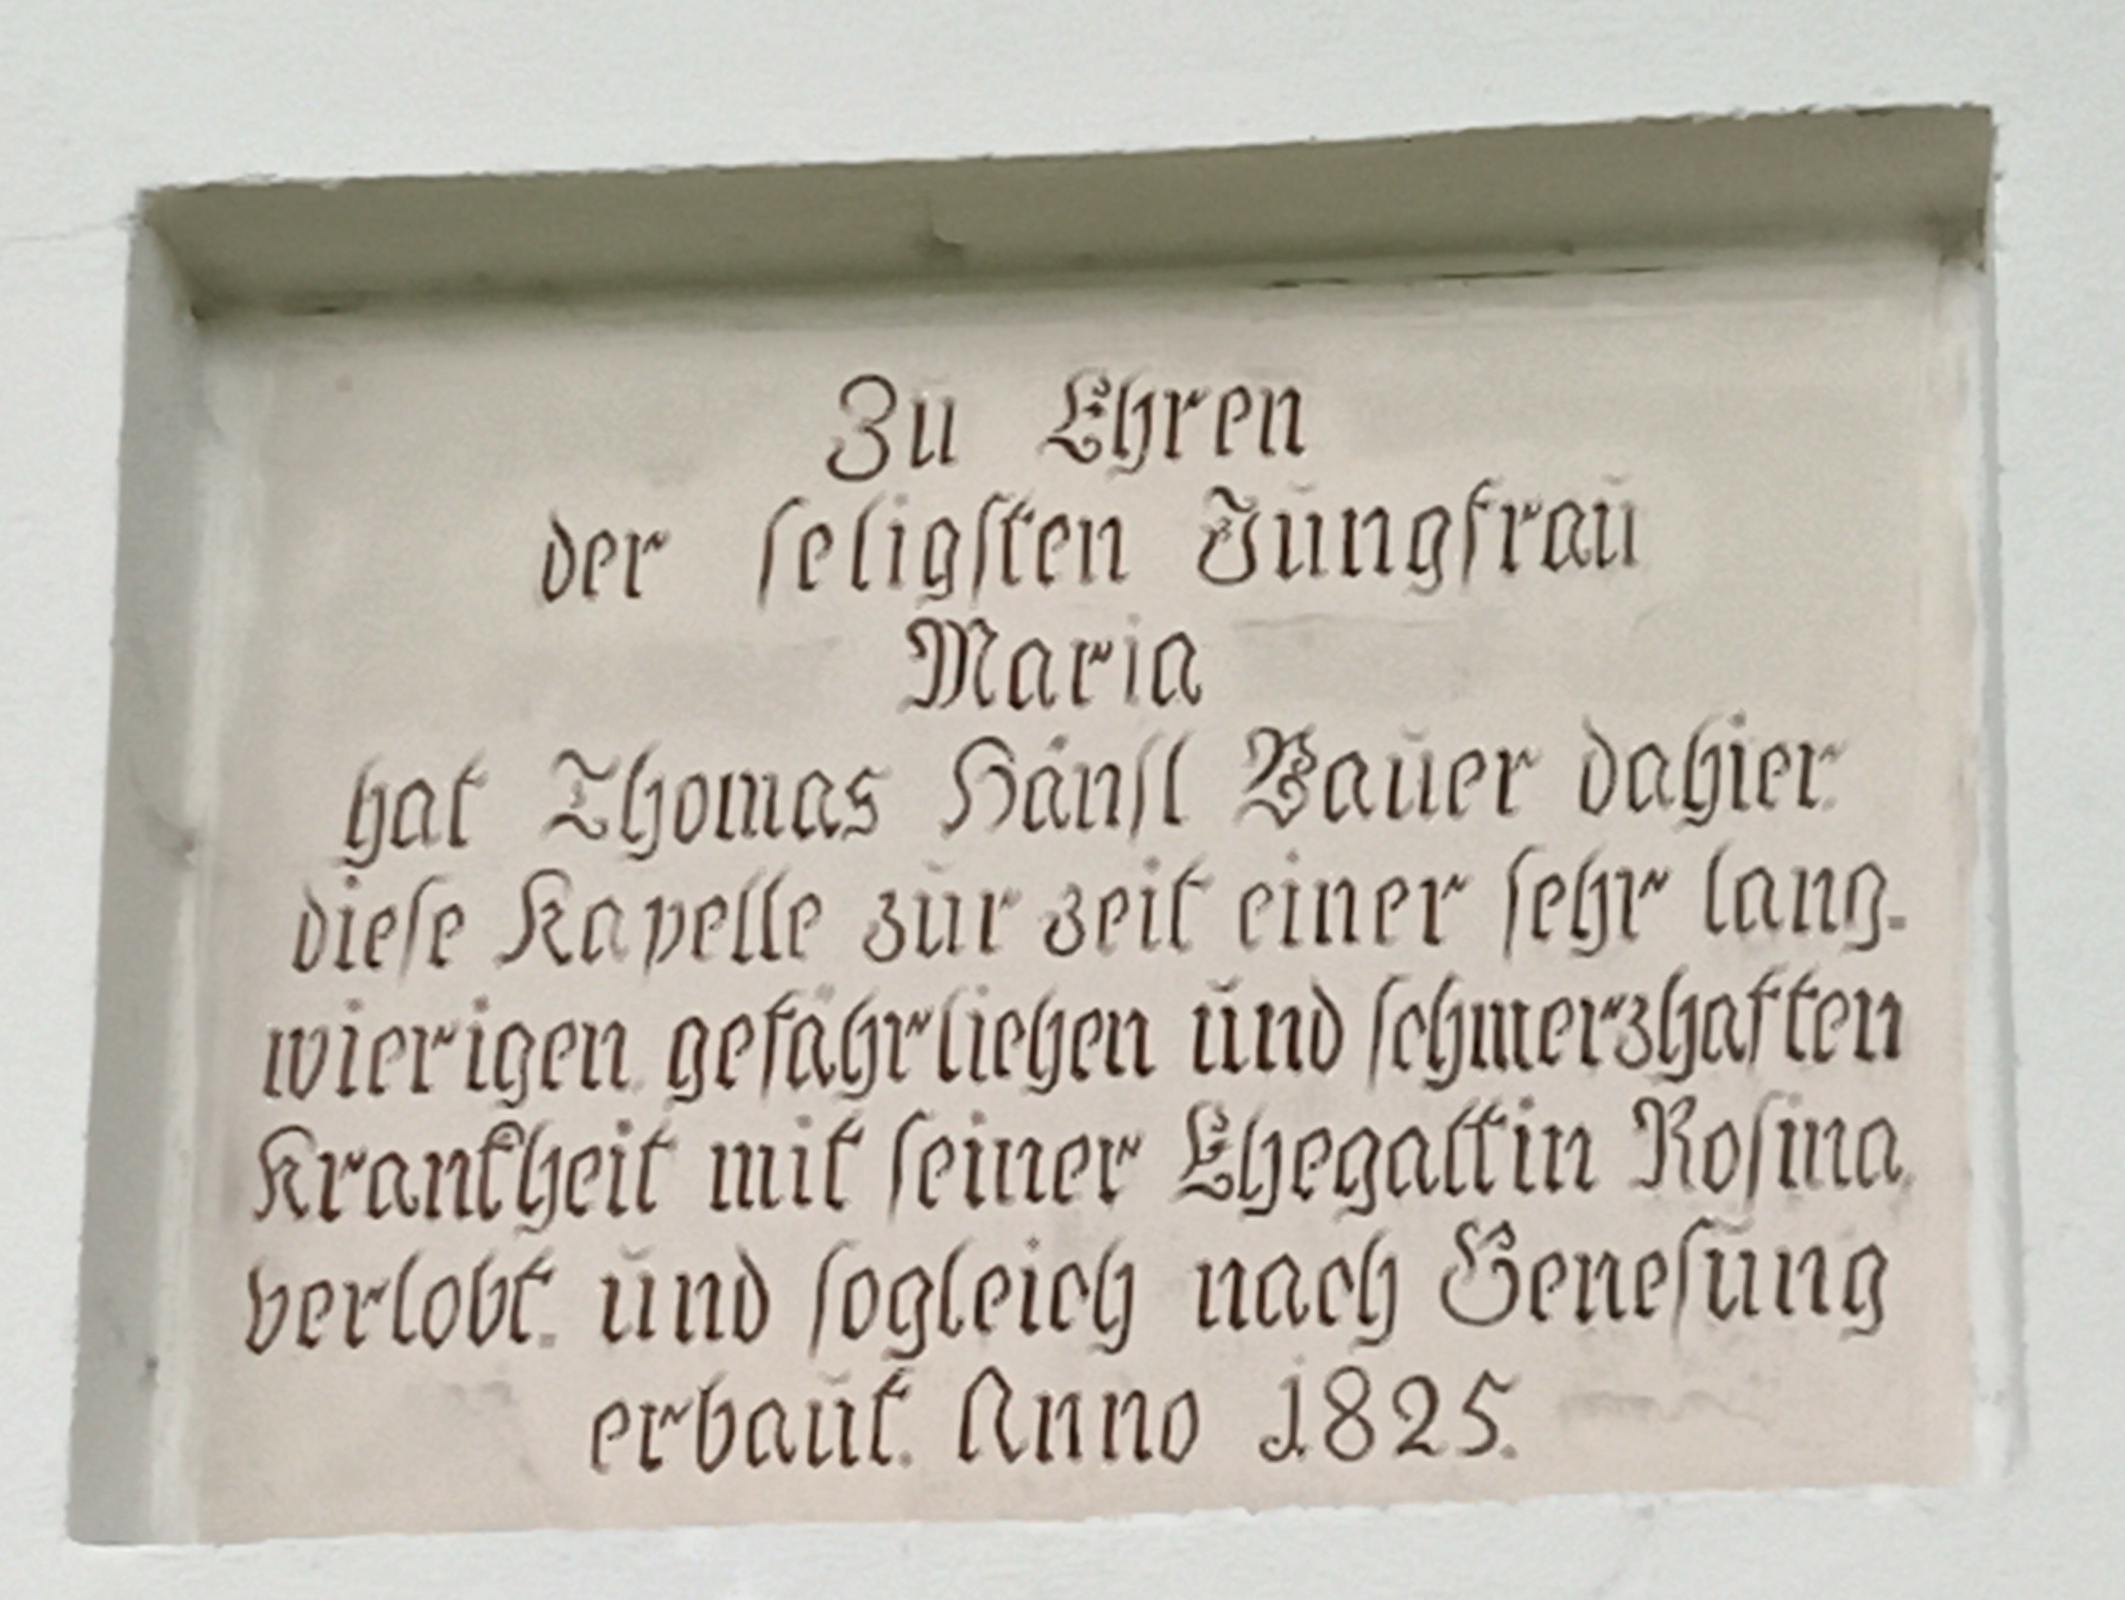 Zu Ehren
der seligsten Jungfrau
Maria
hat Thomas Hänsl Bauer dahier
diese Kapelle zur zeit einer sehr lang-
wierigen gefährlichen und schmerzhaften
Krankheit mit seiner Ehegattin Rosina
verlobt. und sogleich nach Genesung
erbaut. Anno 1825.